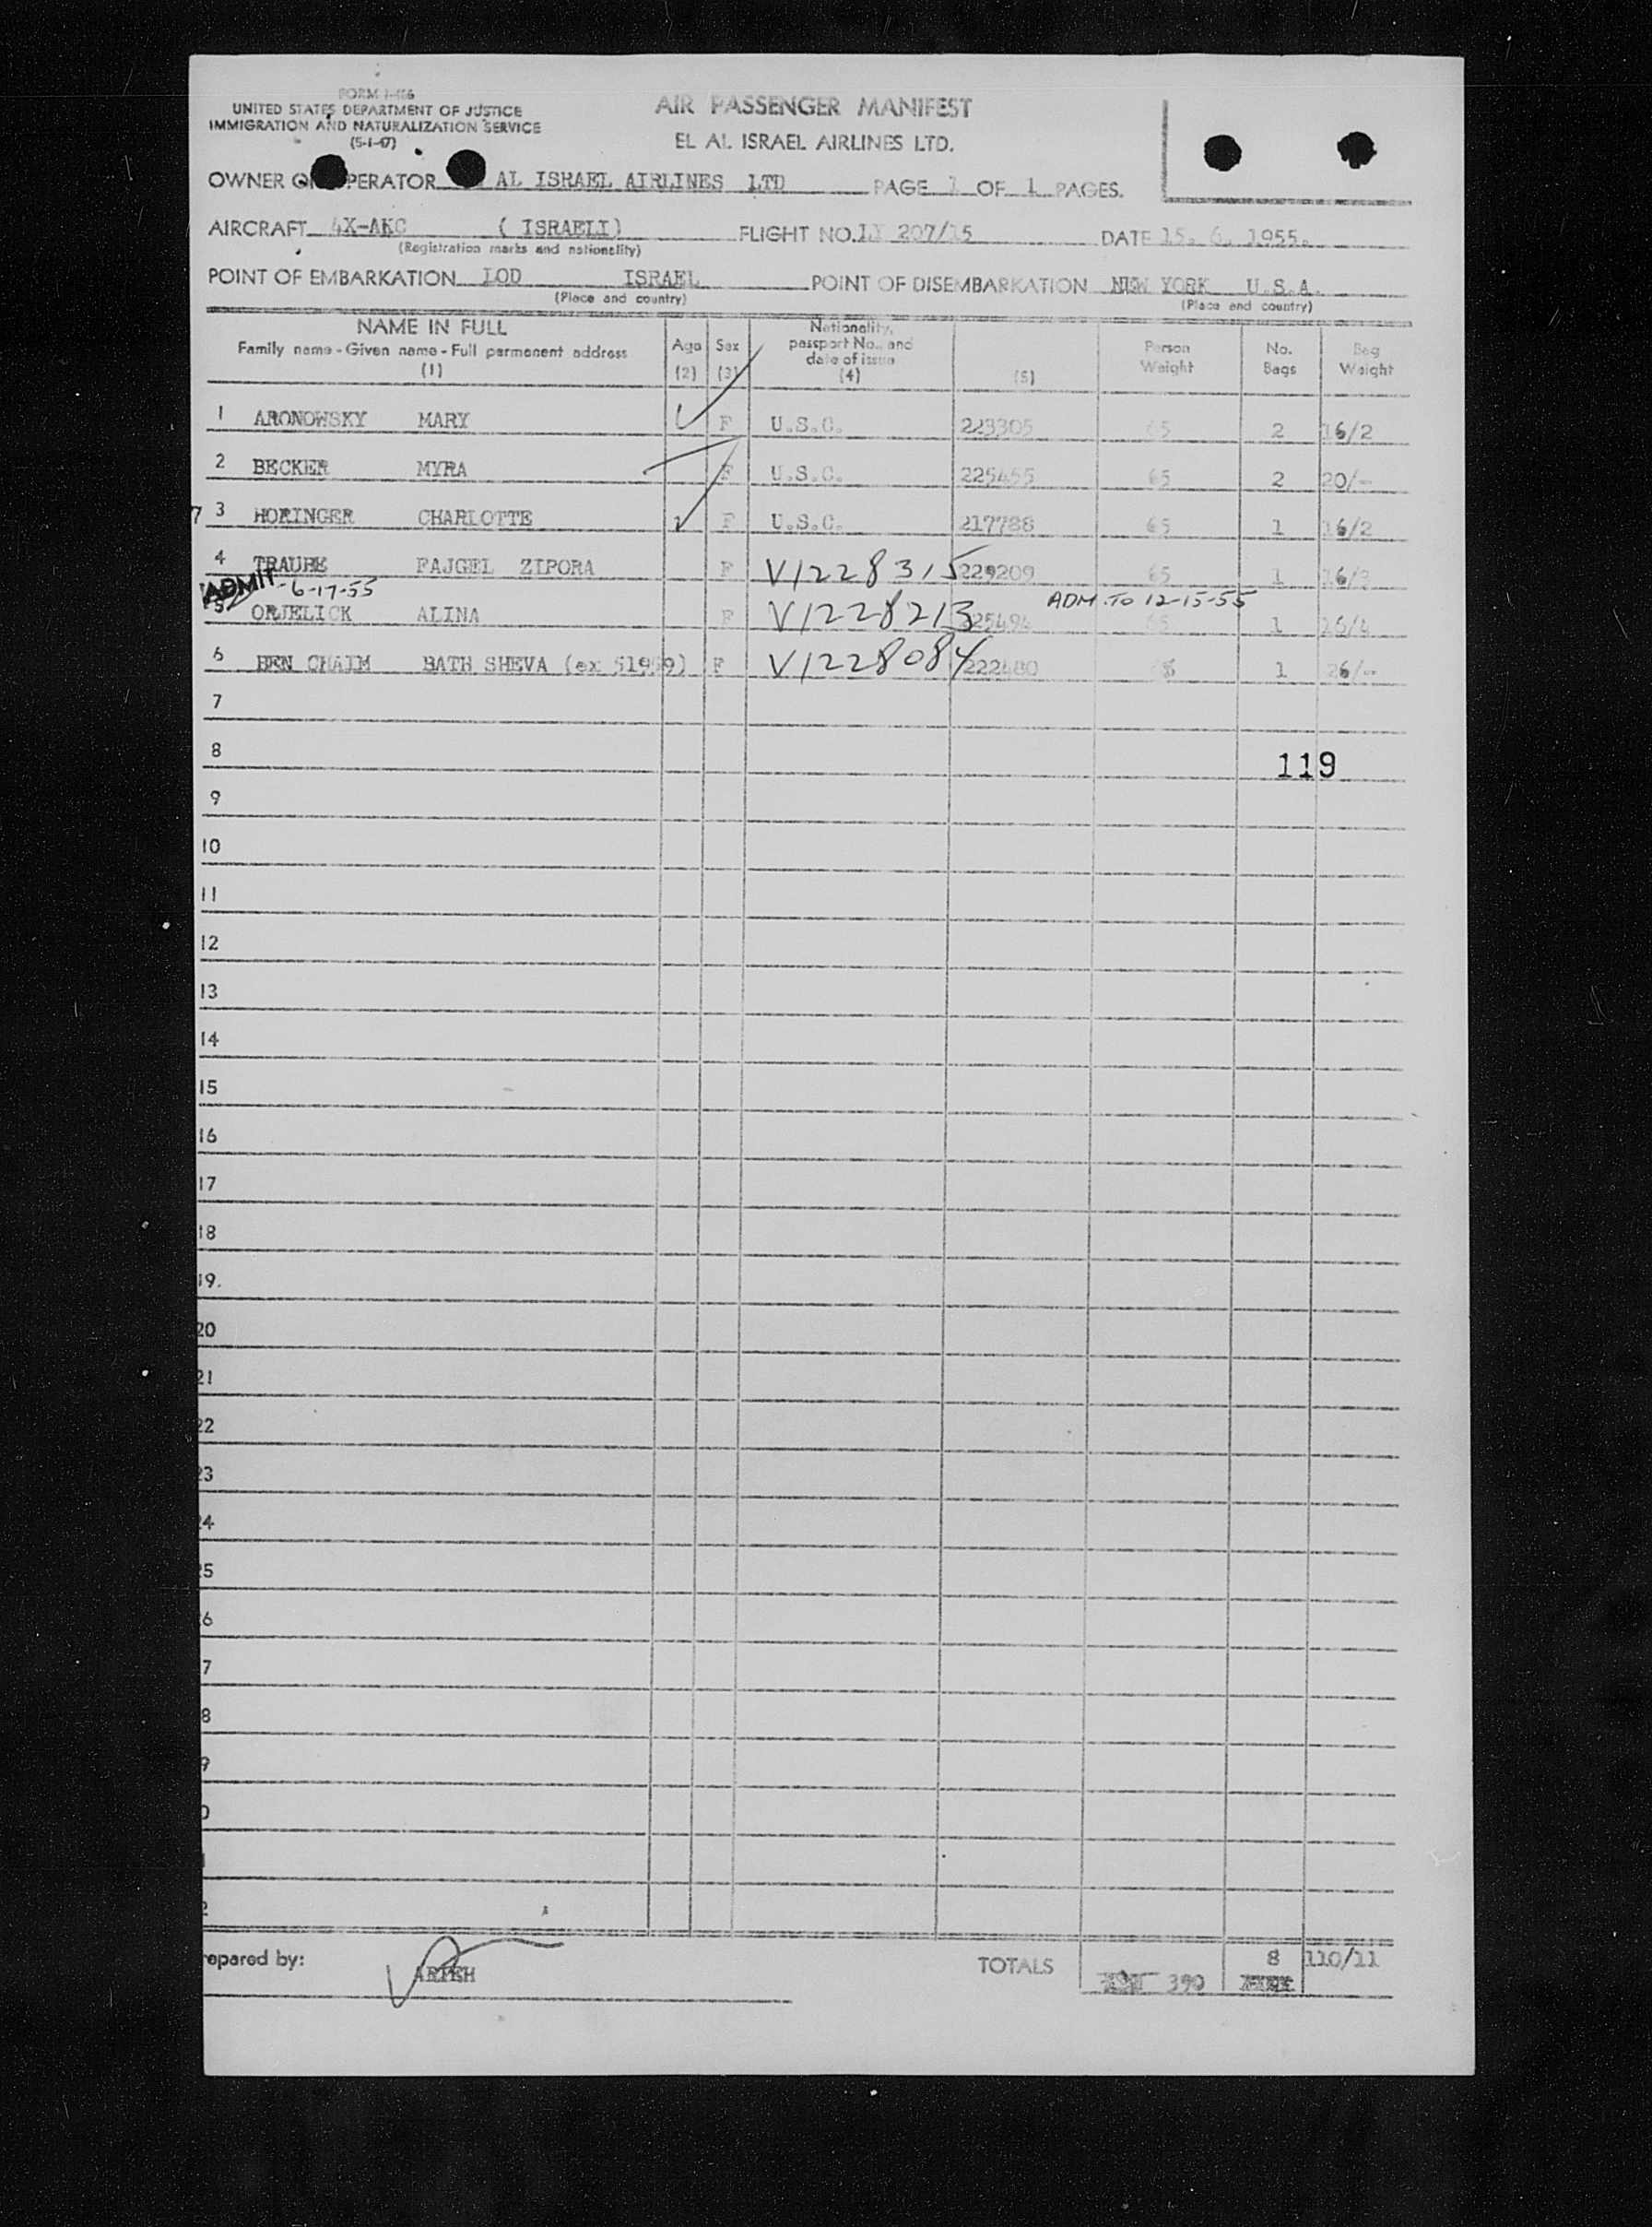 FORM I-466
UNITED STATES DEPARTMENT OF JUSTICE
IMMIGRATION AND NATURALIZATION SERVICE
(5-1-47)
AIR PASSENGER MANIFEST
EL AL ISRAEL AIRLINES LTD.
OWNER OR OPERATOR AL ISRAEL AIRLINES LTD PAGE 1 OF 1 PAGES.
AIRCRAFT 4X-AKC (ISRAELI) FLIGHT NO. LY 207/15 DATE 15. 6. 1955.
(Registration marks and nationality)
POINT OF EMBARKATION LOD ISRAEL POINT OF DISEMBARKATION NEW YORK U.S.A.
(Place and country) (Place and country)
NAME IN FULL
Family name - Given name - Full permanent address
(1)
Age
(2)
Sex
(3)
Nationality,
passport No., and
date of issue
(4)
(5)
Person
Weight
No.
Bags
Bag
Weight
1 ARONOWSKY MARY F U.S.C. 223305 65 2 16/2
2 BECKER MYRA F U.S.C. 225455 65 2 20/-
7 3 HORINGER CHARLOTTE F U.S.C. 217788 65 1 16/2
4 TRAUBE FAJGEL ZIPORA F V1228315 229209 65 1 16/3
ADMIT 6-17-55 ADM. TO 12-15-55
5 ORJELICK ALINA F V1228213 225494 65 1 16/4
6 BEN CHAIM BATH SHEVA (ex 51959) F V1228084 222480 65 1 26/-
7
8
119
9
10
11
12
13
14
15
16
17
18
19.
20
21
22
23
24
25
6
7
8
9
0
1
2
repared by: ARIEH TOTALS 390 8 110/11